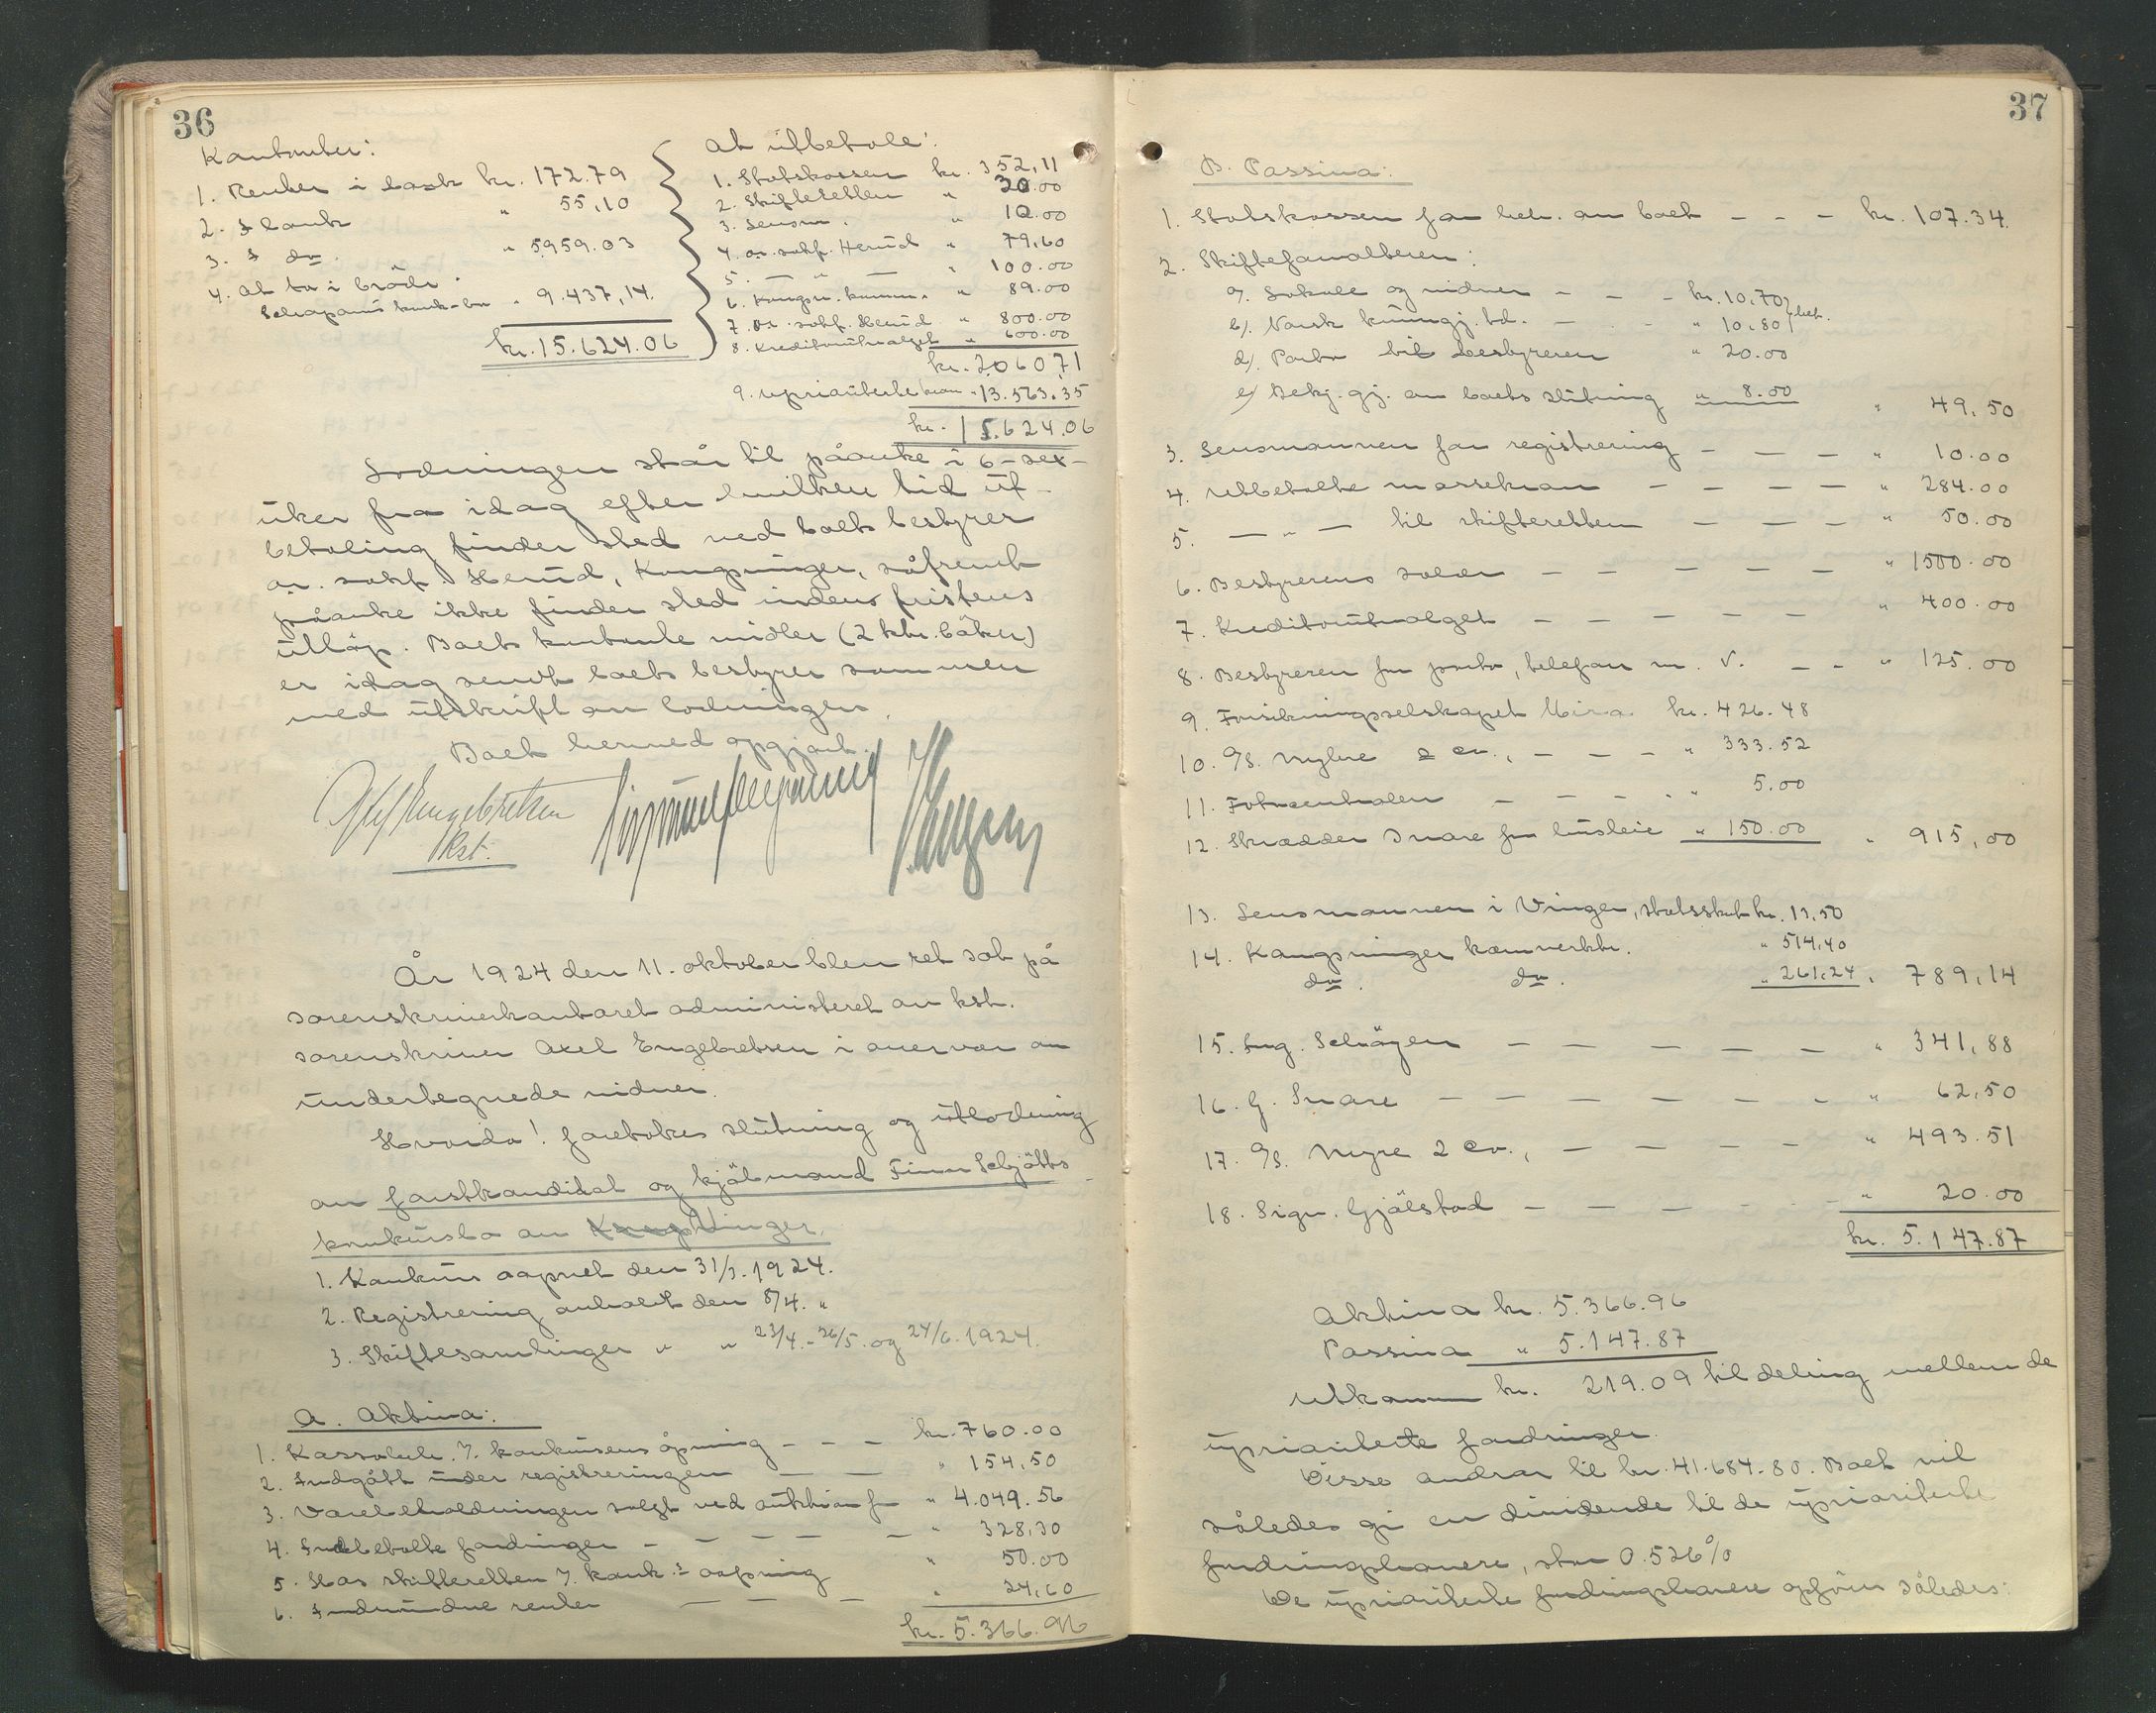 36
Kontanter:
1. Renter i bank kr. 172.79
2. I bank " 55,10
3. I do. " 5959.03
4. At ta i brödr.
konk-bo " 9.437,14.
kr. 15.624.06
At utbetale:
1. Statskassen kr. 352,11
2. Skifteretten " 20.00
3. Lensm. " 10.00
4. o.r. sakf. Herud " 79,60
5. — " — " 100.00
6. Kongsv. komm. " 89.00
7. o.r. sakf. Herud " 800.00
8. Kreditorutvalget " 600.00
kr. 2060,71
9. uprioriterte krav " 13.563.35
kr. 15.624.06
Lodningen står til påanke i 6-sex-
uker fra idag efter hvilken tid ut-
betaling finder sted ved boets bestyrer
o.r. sakf. Herud, Kongsvinger, såfremt
påanke ikke finder sted inden fristens
utløp. Boets kontante midler (2 bkr. böker)
er idag sendt boets bestyrer sammen
med utskrift av lodningen.
Boet hermed opgjort.
Axel Engebretsen
kst.
År 1924 den 11. oktober blev ret sat på
sorenskriverkontoret administreret av kst.
sorenskriver Axel Engebretsen i overvær av
undertegnede vidner.
Hvorda! foretokes slutning og utlodning
av forstkandidat og kjöbmand Finn Schjötts
konkursbo av Vinger.
1. Konkurs aapnet den 31/3. 1924.
2. Registrering avholdt den 8/4. "
3. Skiftesamlinger " " 23/4. - 26/5. og 24/6. 1924.
A. Aktiva:
1. Kassabeh. v. konkursens åpning - - - kr. 760.00
2. Indgått under registreringen — — " 154,50
3. Varebeholdningen solgt ved auktion for " 4.049.56
4. Indbetalte fordringer - - - - - " 328,30
5. Hos skifteretten v. konk.s aapning " 50.00
6. Indvundne renter — — — " 24,60
kr. 5.366.96
37
B. Passiva:
1. Statskassen for beh. av boet - - - kr. 107.34.
2. Skifteforvalteren:
a). Lokale og vidner - - - kr. 10,70
b). Norsk kunngj. td. - - - " 10.80 } bet.
d). Porto til bestyreren " 20.00
e) Bekj. gj. av boets slutning " 8.00 " 49,50
3. Lensmannen for registrering - - - " 10.00
4. Utbetalte massekrav - - - - " 284.00
5. — " — til skifteretten - - - " 50.00
6. Bestyrerens salær - - - - - " 1500.00
7. Kreditorutvalget - - - - - " 400.00
8. Bestyreren for porto, telefon m. v. - - " 125.00
9. Forsikringsselskapet kr. 426.48
10. A/S. Mylre & Co., - - - " 333.52
11. - - - - " 5.00
12. Skrædder Snare for husleie " 150.00 " 915,00
13. Lensmannen i Vinger, statsskat kr. 13,50
14. Kongsvinger kæmnerktr. " 514,40
do. do. " 261,24 " 789,14
15. Ing. - - - - - " 341,88
16. G. Snare - - - - - - - " 62,50
17. A/S. Myre & Co., - - - - " 493.51
18. Sign. Gjälstad - - - - - " 20.00
kr. 5.147.87
Aktiva kr. 5.366.96
Passiva " 5.147.87
Utkomm kr. 219.09 til deling mellem de
uprioriterte fordringer.
Disse andrar til kr. 41.684.80. Boet vil
således gi en dividende til de uprioriterte
fordringshavere, stor 0.526%
De uprioriterte fordringshavere opføres således: